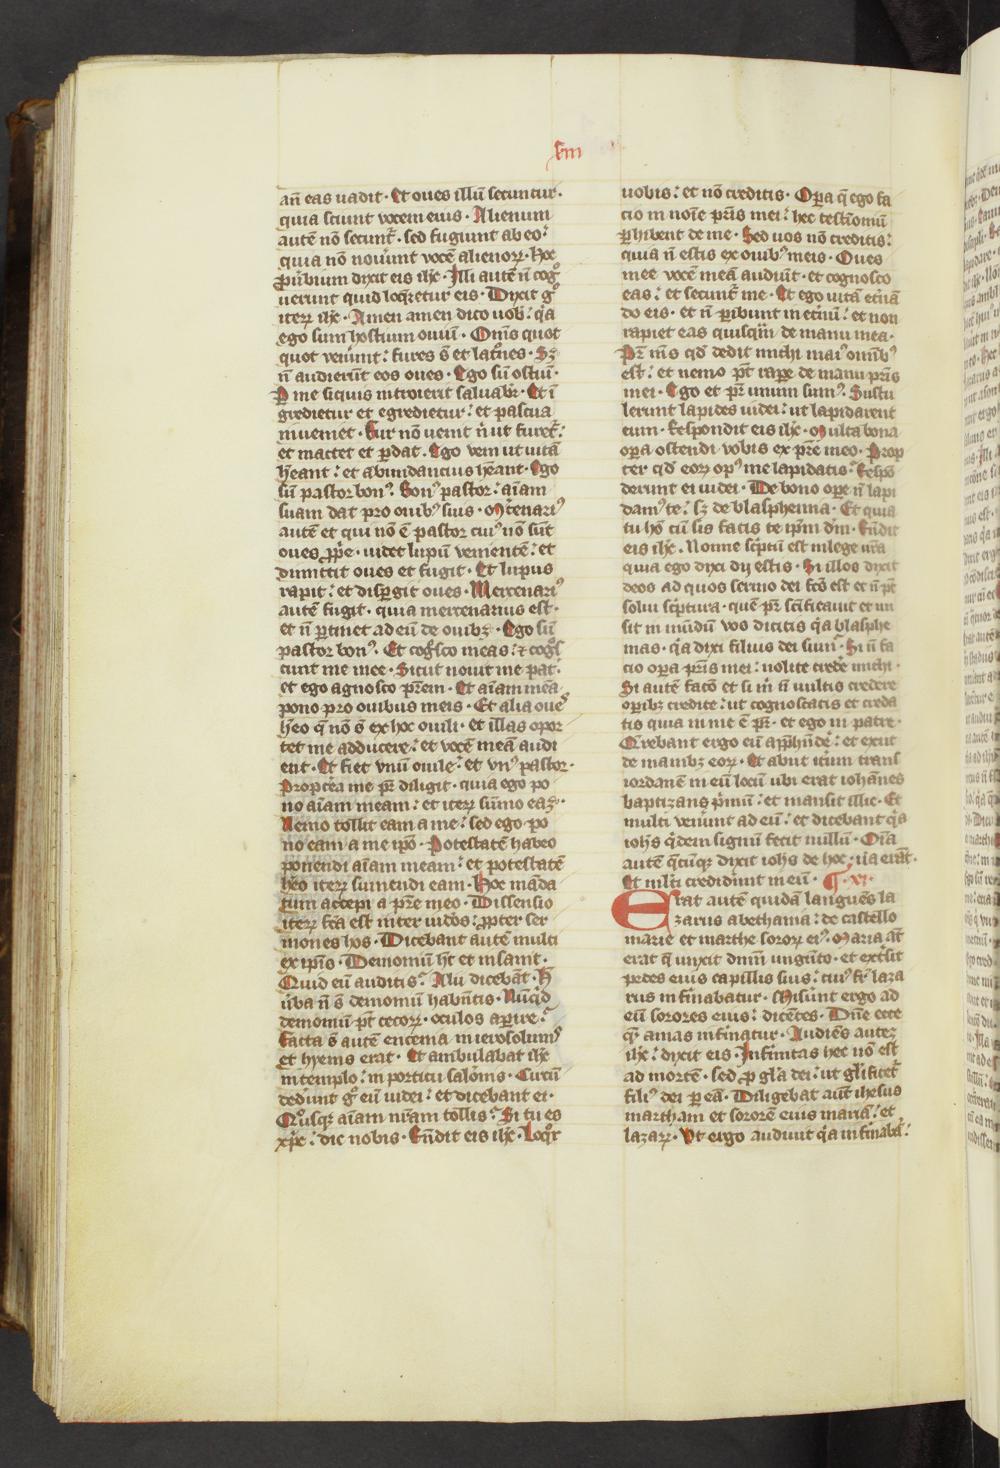 añ eas uadit · Et oues illū secuntur ·
quia sciunt vocem eius · Alienum
autē nō secunt᷑ · sed fugiunt ab eo :
quia nō nouerunt vocē alienoꝝ · Hoc
ꝓuerbium dixit eis ihc · Illi autē ñ cog
uerunt quid loqueretur eis · Dixit gͦ
iterꝫ ihc · Amen amen dico uob : qa
ego sum hostium ouiū · Om̄s quot
quot veneriūt : fures s̄ et latrones · Sꝫ
ñ audierūt eos oues · Ego sū ostiū ·
Ꝑ me siquis introierit saluabr̄ · Et ī
gredietur et egredietur : et pascua
inuemet · Fur nō uenit ñ ut furet᷑ :
et mactet et ꝑdat · Ego veni ut uitā
heant : et abundancius heant · Ego
sū pastor bonꝰ · Bonꝰ pastor : aīam
suam dat pro ouibꝰ suis · Mercenariꝰ
autē et qui nō ē pastor cuiꝰ nō sūt
oues ꝓpe · uidet lupū venientē : et
dimittit oues et fugit · Et lupus
rapit : et disꝑgit oues · Mercenariꝰ
autē fugit · quia mercenarius est ·
et ñ ꝑtinet ad eū de ouibꝫ · Ego sū
pastor bonꝰ · Et cogsco meas : ⁊ cogs
cunt me mee · Sicut nouit me pat ·
et ego agnosco pr̄em · Et aīam meā
pono pro ouibus meis · Et alia oues
heo q̄ nō s̄ ex hoc ouili · et illas opor
tet me adducere : et vocē meā audi
ent · Et fiet vnū ouile : et vnꝰ pastor ·
Propterea me pr̄ diligit · quia ego po
no aīam meam : et iterꝫ sumo eaꝫ ·
Nemo tollit eam a me : sed ego po
no eam a me ipō · Potestatē habeo
ponendi aīam meam : et potestatē
heo iterꝫ sumendi eam · Hoc māda
tum accepi a pr̄e meo · Dissensio
iterꝫ fc̄a est inter iudeos : ꝓpter ser
mones hos · Dicebant autē multi
ex ip̄is · Demoniū ht et insanit ·
Quid eū auditis : Alii dicebāt · H
uba ñ s̄ demoniū habentis · Nunqd
demoniū pt cecoꝝ · oculos aperire :
Facta s̄ autē encenia in ierosolumis
et hyems erat · Et ambulabat ihc
in templo : in porticu salomīs · Circū
dederunt gͦ eū iudei : et dicebant ei ·
Quousqꝫ aīam nrām tollis : Si tu es
xp̄c : dic nobis · Rn̄dit eis ihc · Loqr
uobis : et nō creditis · Oꝑa q̄ ego fa
cio in noīe pr̄is mei : hec testīoniū
ꝑhibent de me · Sed uos nō creditis :
quia ñ estis ex ouibꝰ meis · Oues
mee vocē meā audiūt · et cognosco
eas : et secunt᷑ me · Et ego uitā et̄nā
do eis · et ñ ꝑibunt in et̄nū : et non
rapiet eas quisqm̄ de manu mea ·
Pr̄ m̄s qd dedit michi maiꝰ omībꝰ
est : et nemo pt raꝑe de manu pr̄is
mei · Ego et pr̄ unum sumꝰ · Sustu
lerunt lapides iudei : ut lapidarent
eum · Respondit eis ihc · Multa bona
oꝑa ostendi vobis ex pr̄e meo · Prop
ter qd eoꝝ opꝰ me lapidatis : Respō
derunt ei iudei · De bono oꝑe ñ lapi
damꝰ te : sꝫ de blasphemia · Et quia
tu ho cū sis facis te ip̄m dm̄ · Rn̄dit
eis ihc · Nonne sc̄ptū est in lege ur̄a
quia ego dixi dij estis · Si illos dixit
deos ad quos sermo dei fc̄s est et ñ pt
solui sc̄ptura · quē pr̄ sc̄ificauit et mi
sit in mūdū vos dicitis qa blasphe
mas · qa dixi filius dei sum · Si ñ fa
cio opera pr̄is mei : nolite credē michi ·
Si autē facio et si m̄ ñ uultis credere
oꝑibꝫ credite : ut cognoscatis et creda
tis quia in me ē pr̄ · et ego in patre ·
Querebant ergo eū appr̄hendē : et exiit
de manibꝫ eoꝝ · Et abiit iterum trans
iordanē in eū locū ubi erat iohānes
baptizans pimū : et mansit illic · Et
multi venerunt ad eū : et dicebant qa
iohs qdem signū fecit nullū · Oīa
autē qcūqꝫ dixit iohs de hoc · uā erāt ·
Et multi crediderunt in eū · ¶ · xi ·
Erat autē quidā languēs la
zarus a bethania : de castello
marie et marthe soroꝝ eiꝰ · Maria aūt
erat q̄ unxit dnm̄ ungūto · et extersit
pedes eius capillis suis : cuiꝰ fr̄ laza
rus infirmabatur · Miserunt ergo ad
eū sorores eius : dicētes · Dn̄e ecce
q̄ amas infirmatur · Audiēs auteꝫ
ihc : dixit eis · Infirmitas hec nō est
ad mortē · sed ꝓ gl̄a dei : ut gl̄ificet᷑
filiꝰ dei ꝑ eā · Diligebat aūt ihesus
martham et sororē eius mariā : et
lazaꝝ · Vt ergo audiuit qa infirmabat᷑ :